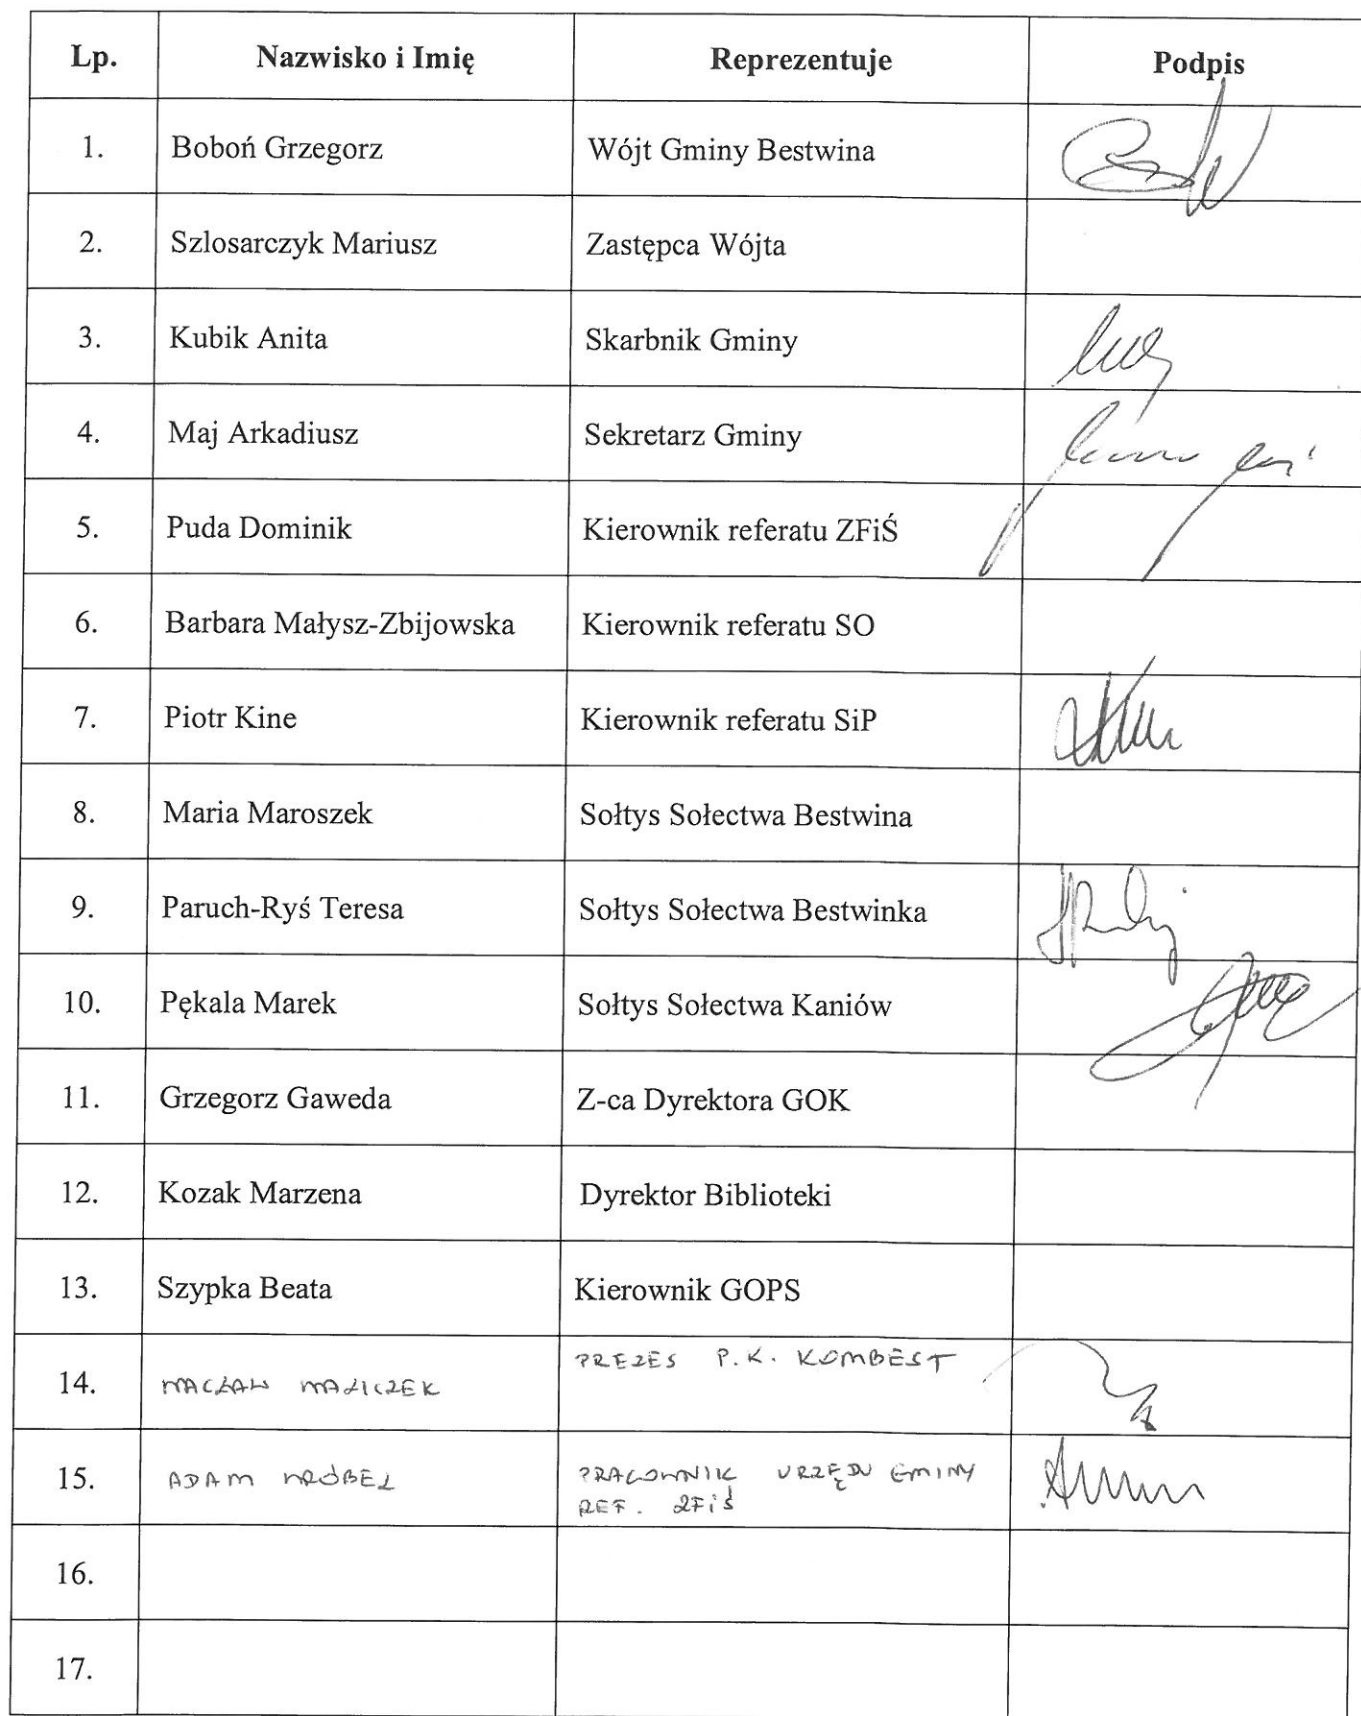 Lp. Nazwisko i Imię Reprezentuje Podpis
1. Boboń Grzegorz Wójt Gminy Bestwina
2. Szlosarczyk Mariusz Zastępca Wójta
3. Kubik Anita Skarbnik Gminy
4. Maj Arkadiusz Sekretarz Gminy
5. Puda Dominik Kierownik referatu ZFiŚ
6. Barbara Małysz-Zbijowska Kierownik referatu SO
7. Piotr Kine Kierownik referatu SiP
8. Maria Maroszek Sołtys Sołectwa Bestwina
9. Paruch-Ryś Teresa Sołtys Sołectwa Bestwinka
10. Pękala Marek Sołtys Sołectwa Kaniów
11. Grzegorz Gaweda Z-ca Dyrektora GOK
12. Kozak Marzena Dyrektor Biblioteki
13. Szypka Beata Kierownik GOPS
14. WACŁAW WALICZEK PREZES P.K. KOMBEST
15. ADAM WRÓBEL PRACOWNIK URZĘDU GMINY
REF. ZFiŚ
16.
17.